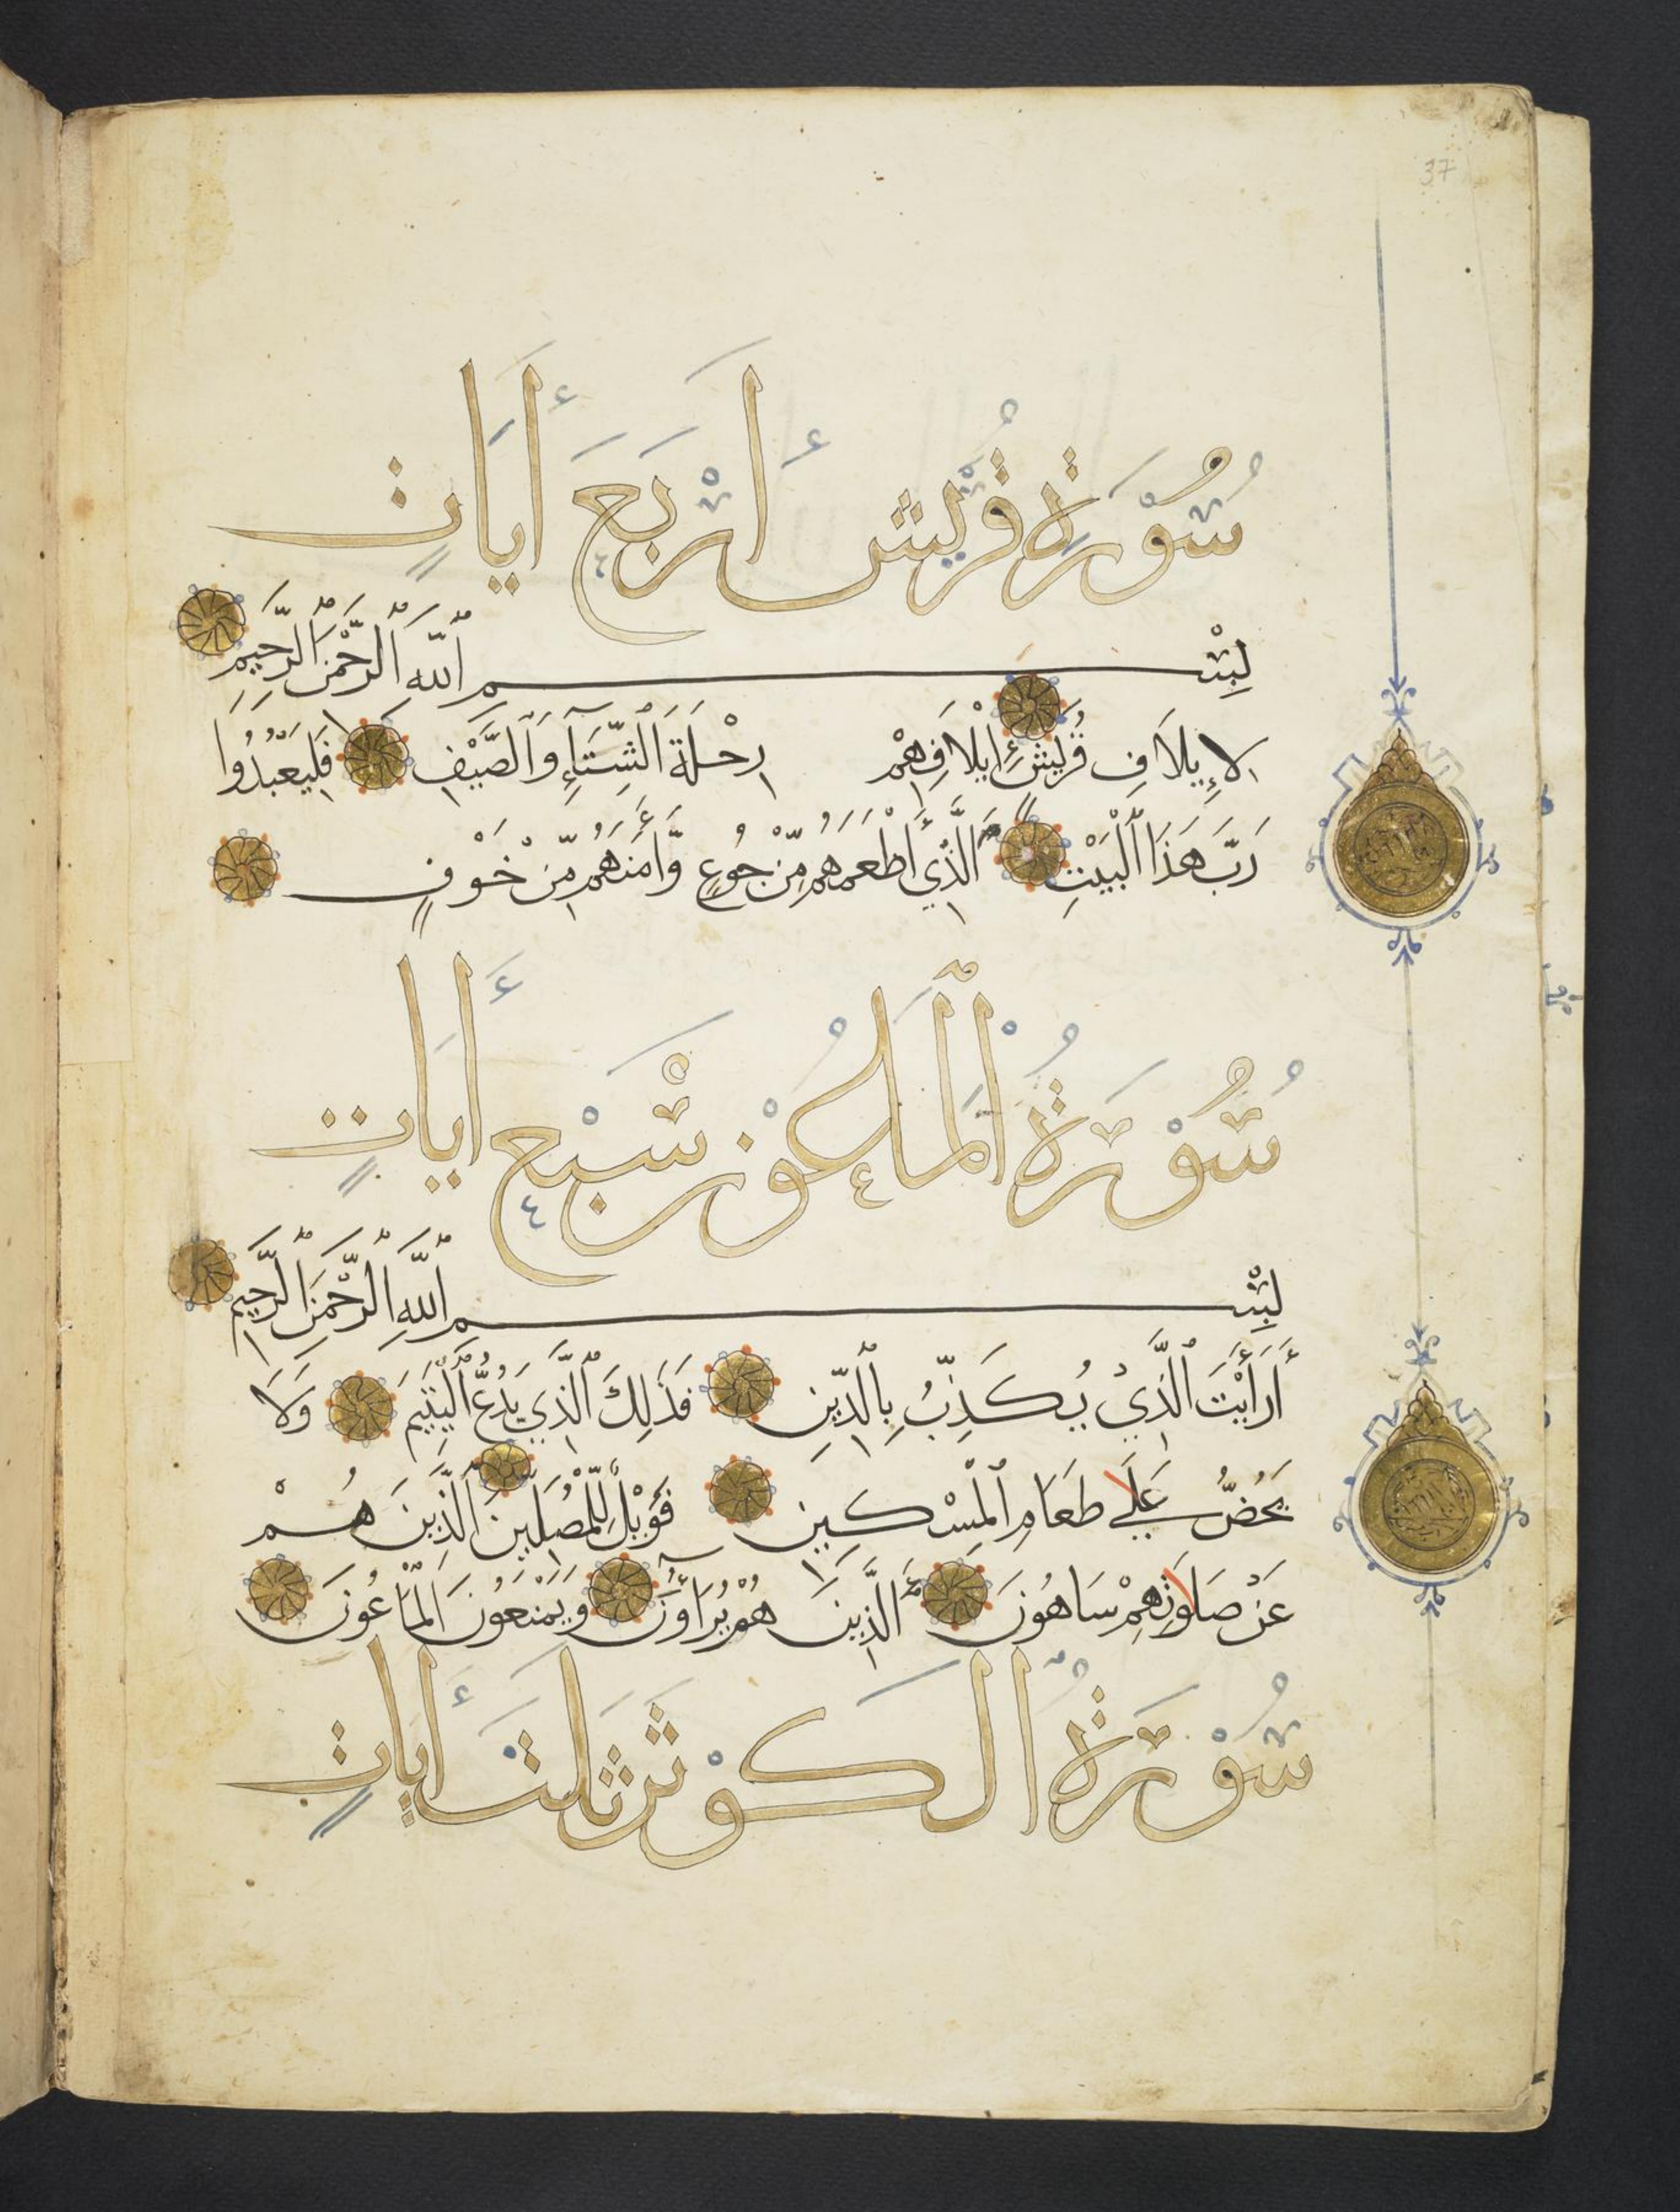 37
سُوْرَةُ قُرَيْش أَرْبَعَ أَيَاتٍ
بِسْمِ ٱللَّهِ ٱلرَّحْمَنِ ٱلرَّحِيمِ
لِإِيلَافِ قُرَيْشٍ إِيْلَافِهِمْ رِحْلَةَ ٱلشِّتَآءِ وَٱلصَّيْفِ فَلْيَعْبُدُوا
رَبَّ هَذَا ٱلْبَيْتِ ٱلَّذِي أَطْعَمَهُم مِّنْ جُوْعٍ وَّأَمَنَهُم مِّنْ خَوْفٍ
سُوْرَةُ ٱلْمَاعُوْن سَبْع أَيَاتٍ
بِسْمِ ٱللَّهِ ٱلرَّحْمَنِ ٱلرَّحِيمِ
أَرَأَيْتَ ٱلَّذِيْ يُكَذِّبُ بِالدِّيْنِ فَذَلِكَ ٱلَّذِي يَدُعُّ ٱلْيَتِيمَ وَلَا
يَحُضُّ عَلَى طَعَامِ ٱلْمِسْكِيْنِ فَوَيْلٌ لِّلْمُصَلِّيْنَ ٱلَّذِيْنَ هُمْ
عَنْ صَلَوتِهِمْ سَاهُوْنَ ٱلَّذِيْنَ هُمْ يُرَآؤُنَ وَيَمْنَعُوْنَ ٱلْمَاعُوْنَ
سُوْرَةُ ٱلكَوْثَر ثَلَثَ أَيَاتٍ